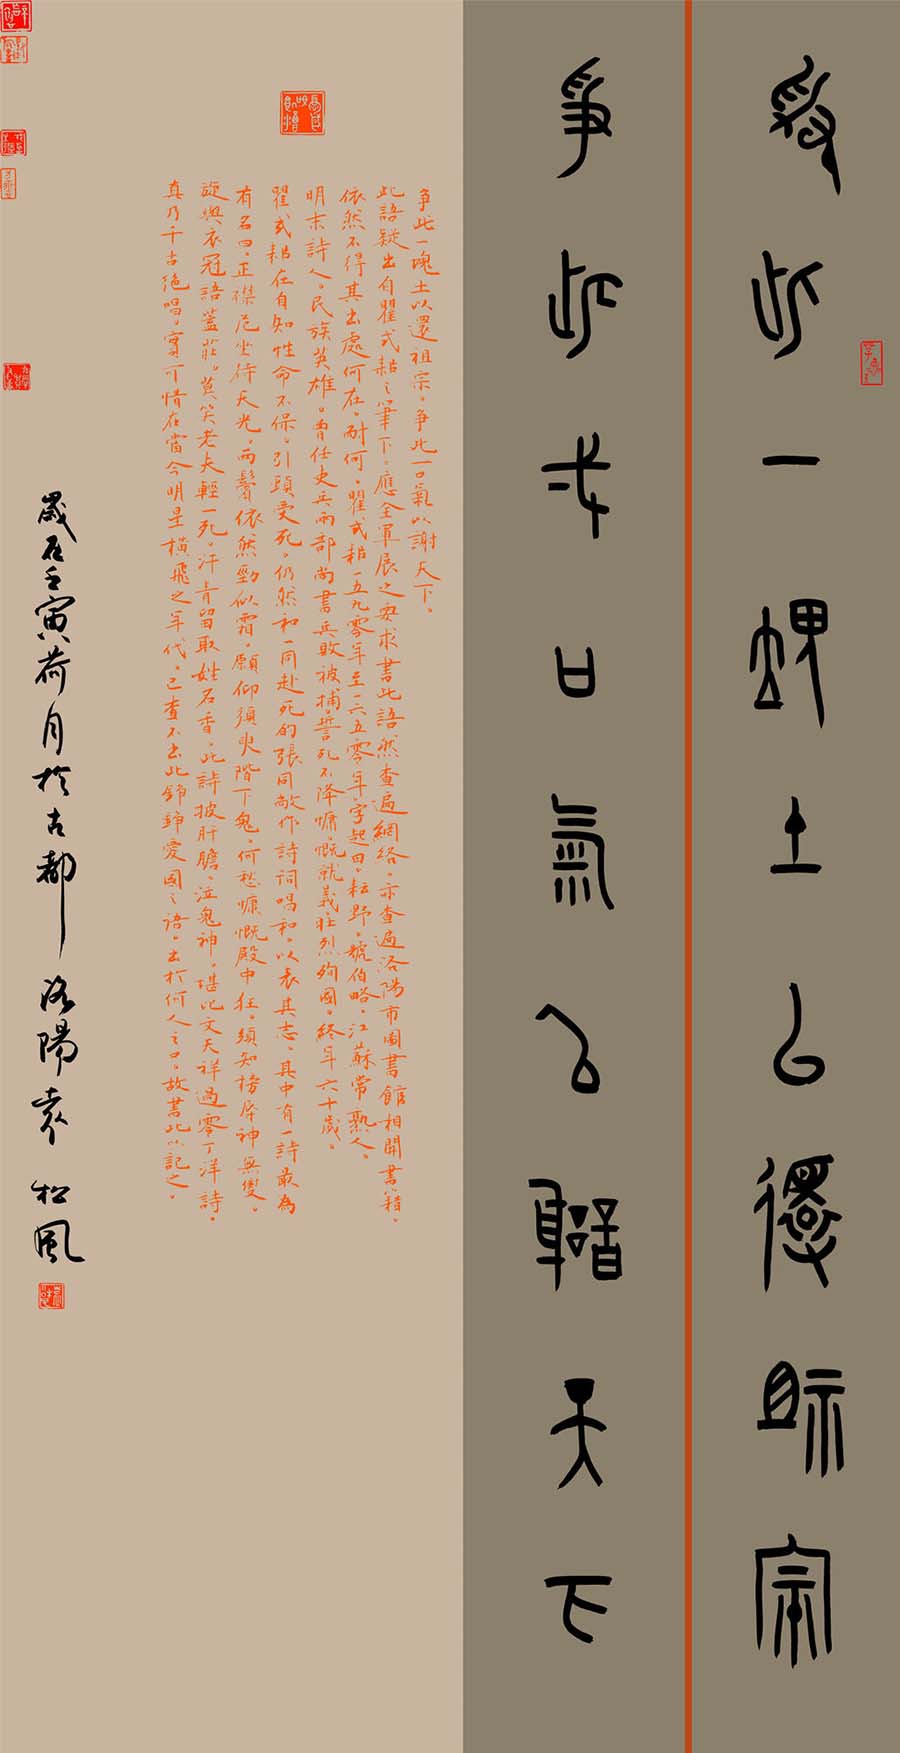 爭此一塊土以還祖宗
爭此弌口氣以謝天下
爭此一塊土以還祖宗。爭此一口氣以謝天下。
此語疑出自瞿式耜之筆下。應全軍展之要求書此語然查遍網絡。亦查遍洛陽市圖書館相開書籍。
依然不得其出處何在。耐何。瞿式耜一五九零年至一六五零年字起田。耘野。號伯略。江蘇常熟人。
明末詩人。民族英雄。曾任吏兵兩部尚書兵敗被捕。誓死不降慷慨就義壯烈殉國。終年六十歲。
瞿式耜在自知性命不保。引頸受死。仍然和一同赴死的張同敞作詩詞唱和。以表其志。其中有一詩最為
有名曰。正襟危坐待天光。兩鬢依然勁似霜。願仰須臾階下鬼。何愁慷慨殿中狂。須知榜辱神無變。
旋與衣冠語蓋莊。莫笑老夫輕一死。汗青留取姓名香。此詩披肝膽。泣鬼神。堪比文天祥過零丁洋詩。
真乃千古絕唱。實可惜在當今明星橫飛之年代。已查不出此錚錚愛國之語。出於何人之口。故書此以記之。
歲在壬寅荷月於古都洛陽袁松風